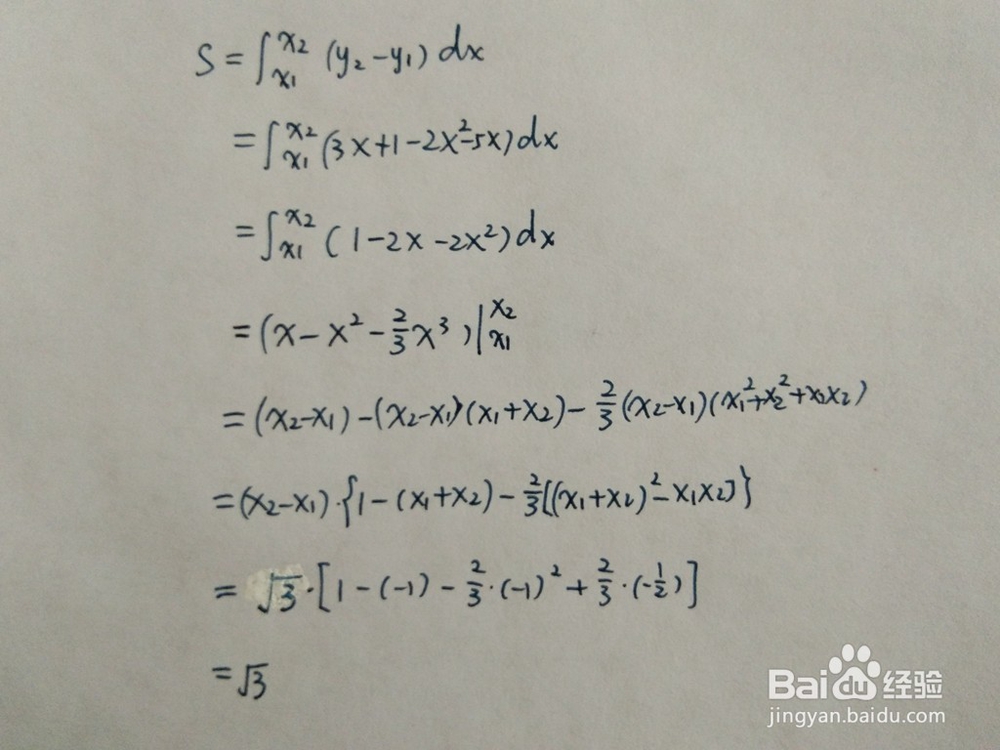 S = ∫_{x1}^{x2} (y₂-y₁) dx
= ∫_{x1}^{x2} (3x+1-2x²-5x) dx
= ∫_{x1}^{x2} (1-2x-2x²) dx
= (x-x²-\frac{2}{3}x³)|_{x1}^{x2}
= (x₂-x₁)-(x₂-x₁)(x₁+x₂)-\frac{2}{3}(x₂-x₁)(x₁²+x₂²+x₁x₂)
= (x₂-x₁)·{1-(x₁+x₂)-\frac{2}{3}[(x₁+x₂)²-x₁x₂]}
= √3·[1-(-1)-\frac{2}{3}·(-1)²+\frac{2}{3}·(-\frac{1}{2})]
= √3
Baidu经验
jingyan.baidu.com